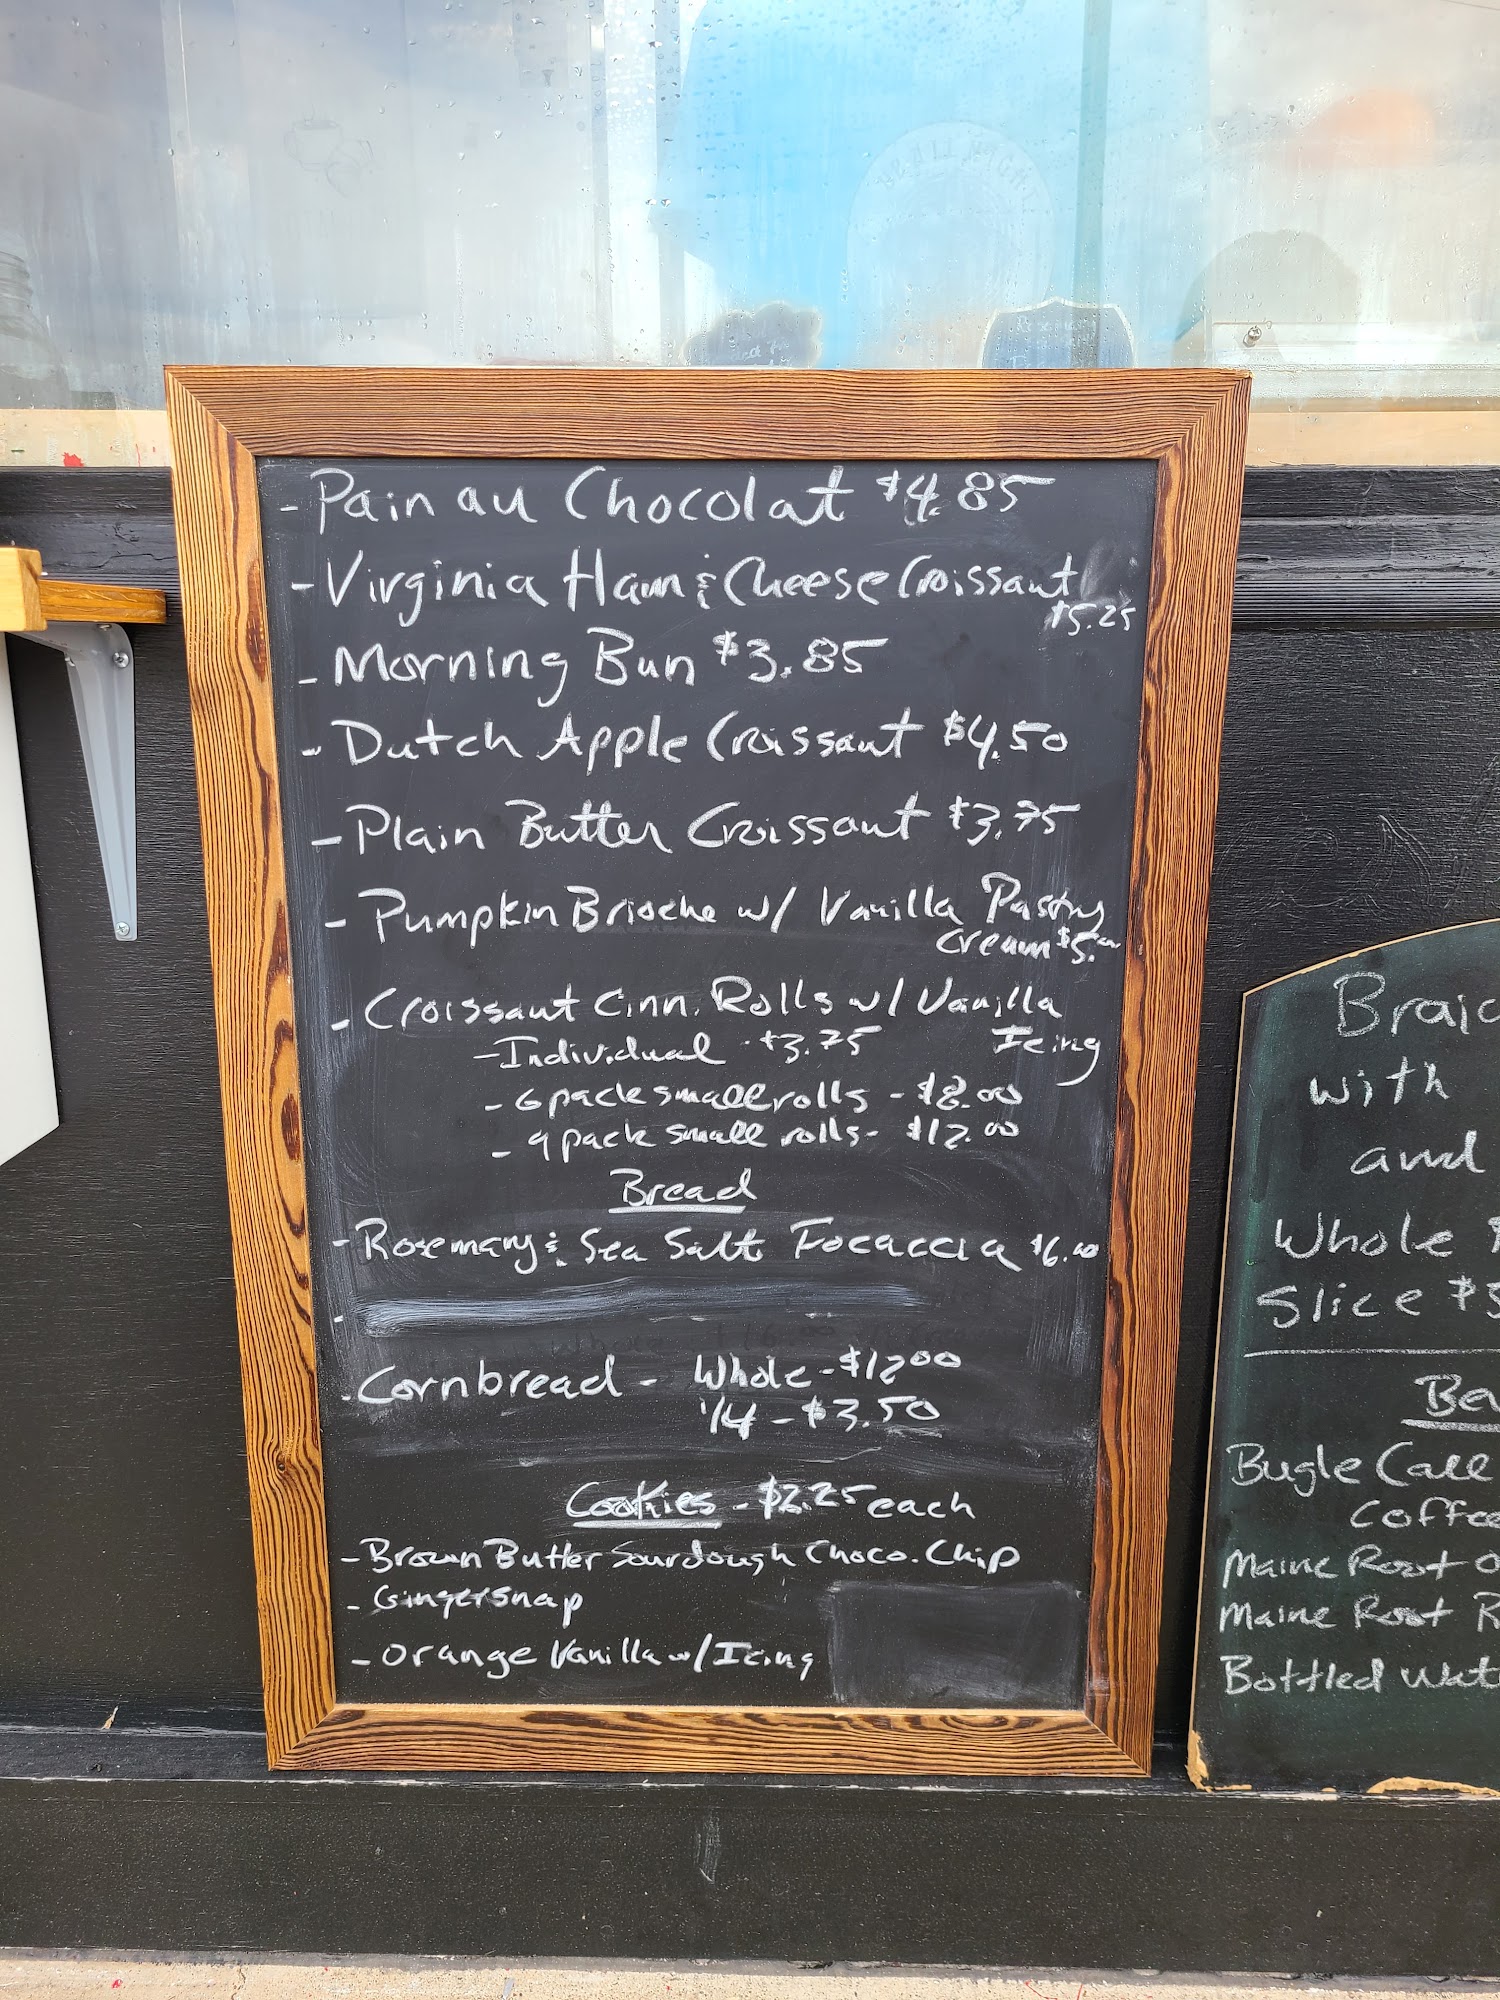 - Pain au Chocolat $4.85
- Virginia Ham & Cheese Croissant
$5.25
- Morning Bun $3.85
- Dutch Apple Croissant $4.50
- Plain Butter Croissant $3.75
- Pumpkin Brioche w/ Vanilla Pastry
Cream $5.00
- Croissant Cinn. Rolls w/ Vanilla
Icing
- Individual - $3.75
- 6 pack small rolls - $8.00
- 9 pack small rolls - $12.00
Bread
- Rosemary & Sea Salt Focaccia $6.00
-
- Cornbread - Whole - $12.00
1/4 - $3.50
Cookies - $2.25 each
- Brown Butter Sourdough Choco. Chip
- Gingersnap
- Orange Vanilla w/ Icing
Braid
with
and
Whole
Slice $5
Bev
Bugle Call
Coffee
Maine Root
Maine Root
Bottled Wat